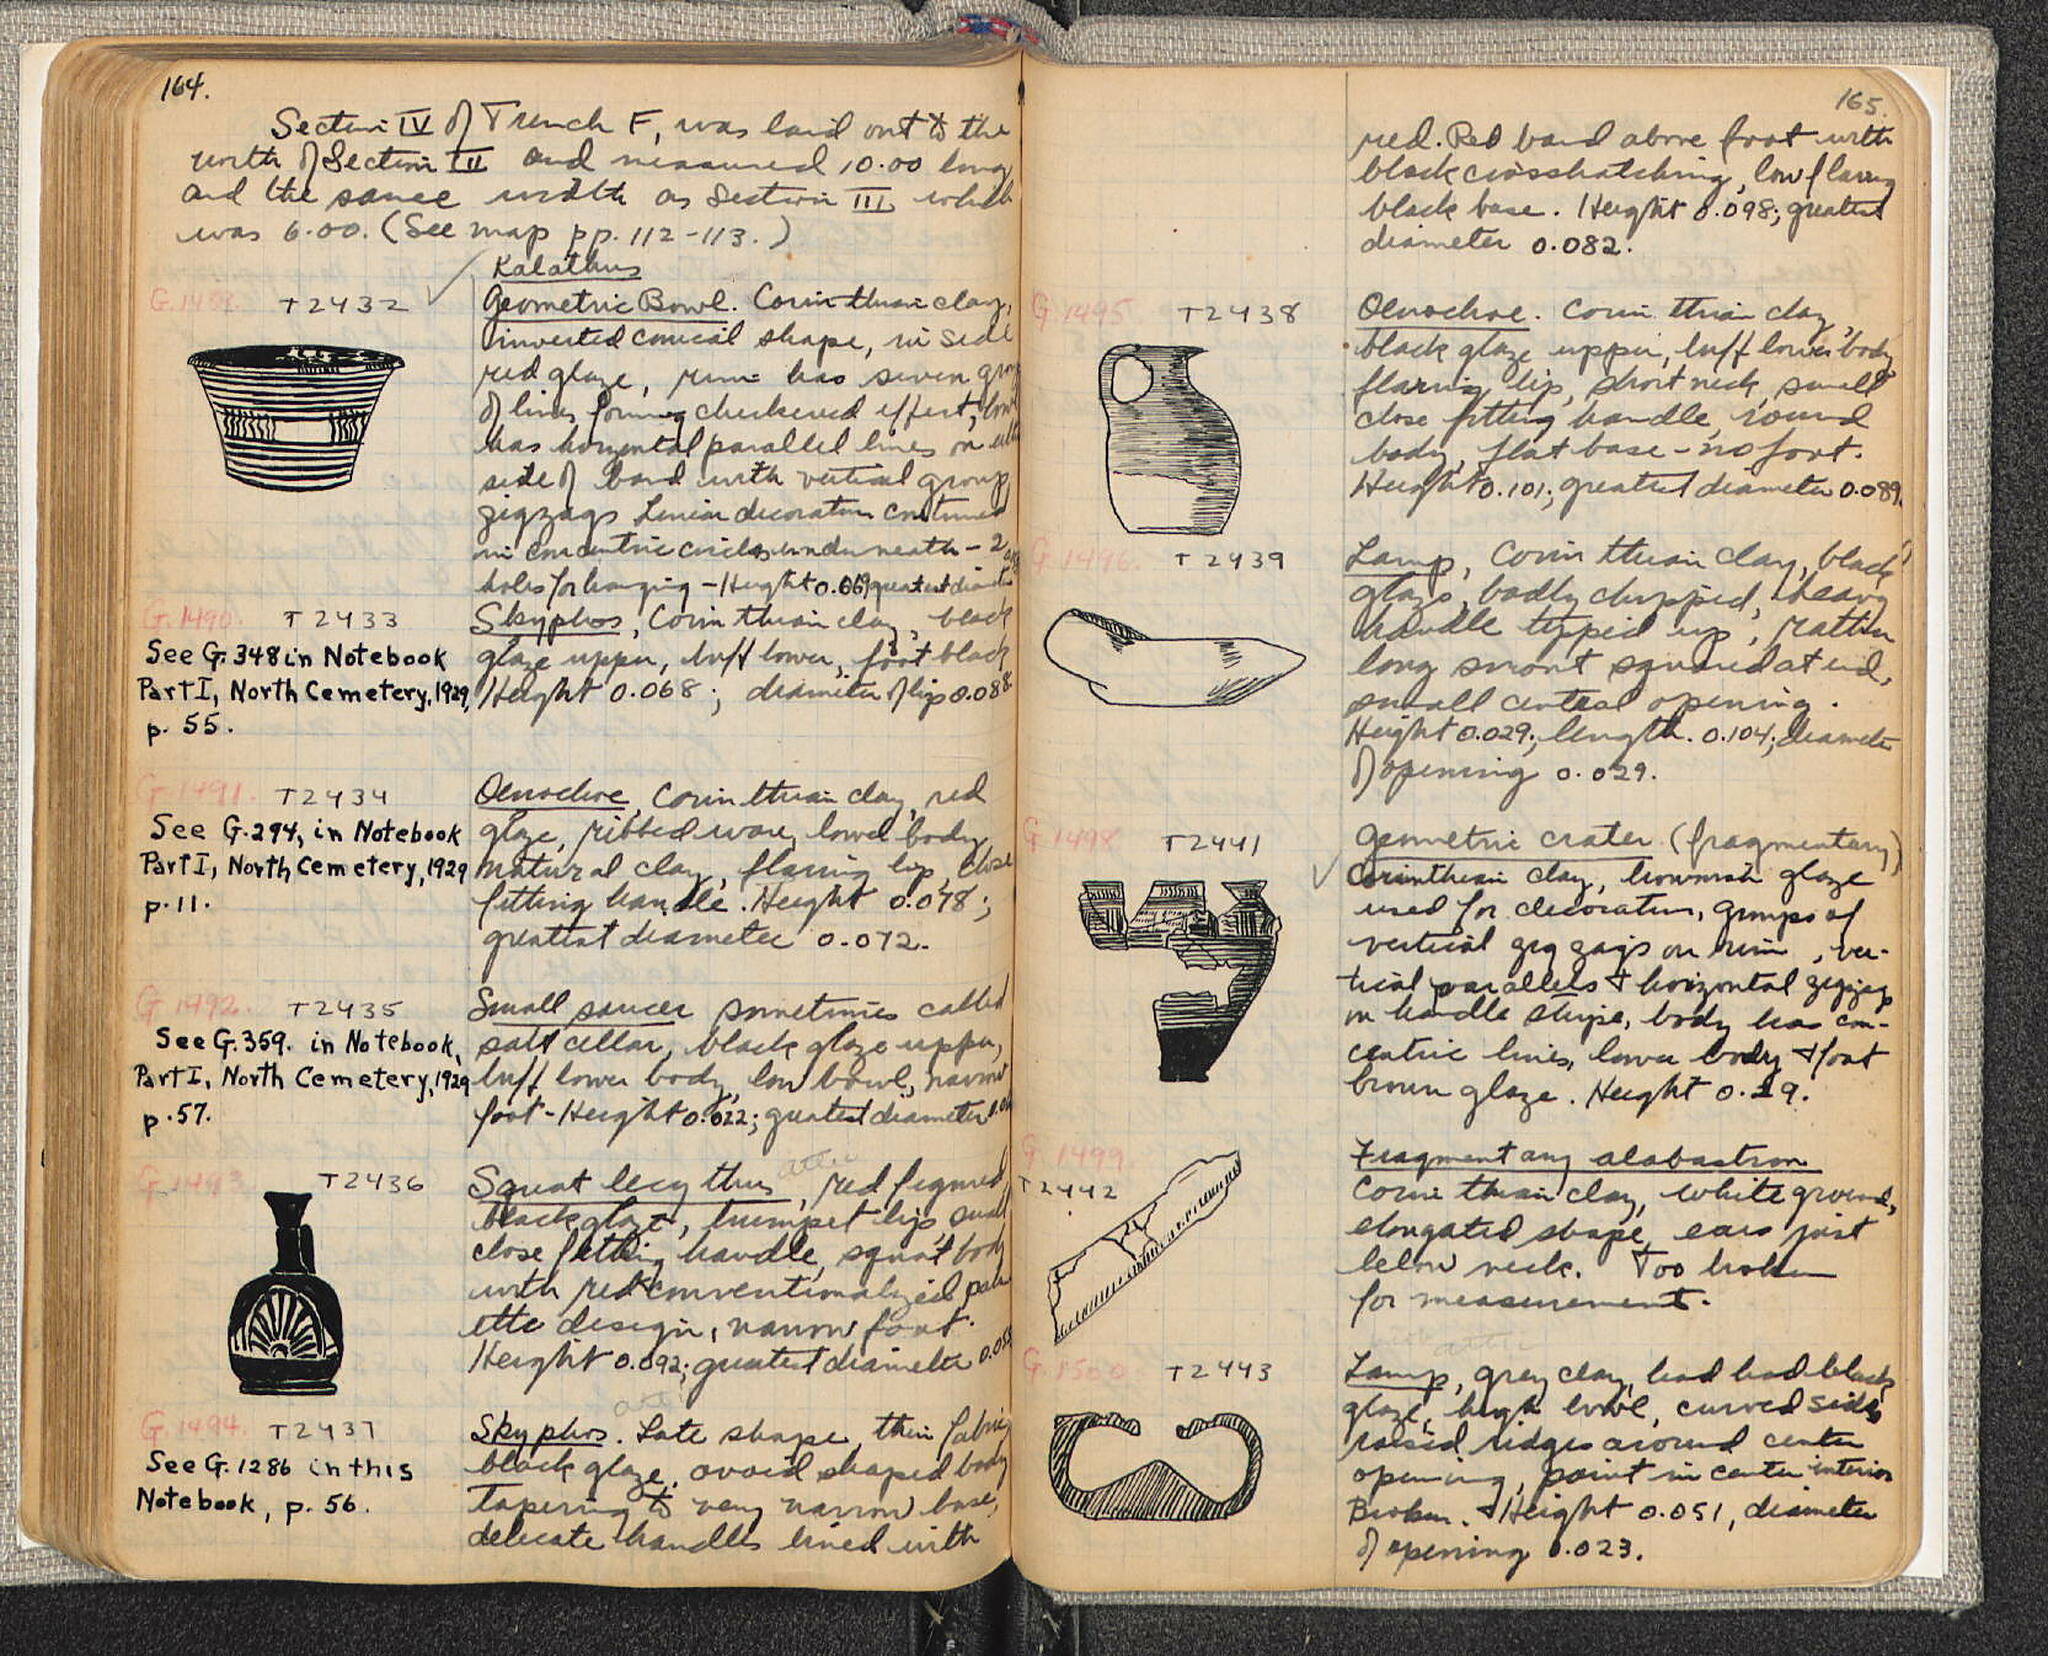 164.
Section IV of Trench F, was laid out to the
north of Section III and measured 10.00 long
and the same width as Section III which
was 6.00. (See map pp. 112-113.)
Kalathus
T2432
Geometric Bowl. Corinthian clay,
inverted conical shape, inside
red glaze, rim has seven
of lines forming checkered effect,
has horizontal parallel lines on
side of band with vertical group
zigzags Linear decoration continues
in concentric circles underneath - 2
holes for hanging - Height 0.069 greatest
G.1490. T2433
See G.348 in Notebook
Part I, North Cemetery, 1929,
p. 55.
Skyphos, Corinthian clay, black
glaze upper, buff lower, foot black
Height 0.068; diameter of lip 0.088
G.1491. T2434
See G.294, in Notebook
Part I, North Cemetery, 1929
p. 11.
Oenochoe, Corinthian clay, red
glaze, ribbed ware, lower body
natural clay, flaring lip, close
fitting handle. Height 0.078;
greatest diameter 0.072.
G.1492. T2435
See G.359. in Notebook,
Part I, North Cemetery, 1929
p. 57.
Small saucer sometimes called
salt cellar, black glaze upper,
buff lower body, low bowl, narrow
foot - Height 0.022; greatest diameter
G.1493 T2436
Squat lecythus, attic red figured,
black glaze, trumpet lip, small
close fitting handle, squat body
with red conventionalized palm
ette design, narrow foot.
Height 0.092; greatest diameter
G.1494. T2437
See G.1286 in this
Notebook, p. 56.
Skyphos. Late shape, thin fabric
black glaze, ovoid shaped body
tapering to very narrow base,
delicate handles lined with
165.
red. Red band above foot with
black crosshatching, low flaring
black base. Height 0.098; greatest
diameter 0.082.
G.1495 T2438
Oenochoe. Corinthian clay,
black glaze upper, buff lower body
flaring lip, short neck, small
close fitting handle, round
body, flat base - no foot.
Height 0.101; greatest diameter 0.089.
G.1496. T2439
Lamp, Corinthian clay, black
glaze, badly chipped, heavy
handle tipped up, rather
long snout squared at end,
small central opening.
Height 0.029; length. 0.104; diameter
of opening 0.029.
G.1498 T2441
Geometric crater (fragmentary)
Corinthian clay, brownish glaze
used for decoration, groups of
vertical zig zags on rim, ver-
tical parallels + horizontal zigzags
on handle stripe, body has con-
centric lines, lower body + foot
brown glaze. Height 0.29.
G.1499. T2442
Fragmentary alabastron
Corinthian clay, white ground,
elongated shape, ears just
below neck. Too broken
for measurement.
G.1500 T2443
attic
Lamp, grey clay, had bad black
glaze, high bowl, curved sides
raised ridges around center
opening, point in center interior
Broken. Height 0.051, diameter
of opening 0.023.